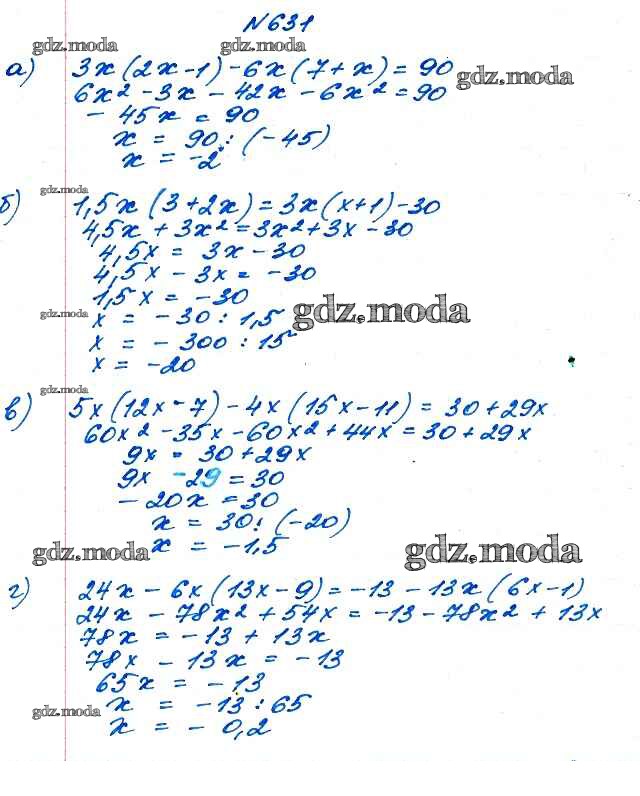 N631
gdz.moda gdz.moda
а) 3x(2x-1)-6x(7+x)=90
gdz.moda
6x²-3x-42x-6x²=90
-45x=90
x=90:(-45)
x=-2
gdz.moda
б) 1,5x(3+2x)=3x(x+1)-30
4,5x+3x²=3x²+3x-30
4,5x=3x-30
4,5x-3x=-30
1,5x=-30
gdz.moda
gdz.moda
x=-30:1,5
x=-300:15
x=-20
gdz.moda
в) 5x(12x-7)-4x(15x-11)=30+29x
60x²-35x-60x²+44x=30+29x
9x=30+29x
9x-29=30
-20x=30
x=30:(-20)
x=-1,5
gdz.moda gdz.moda
г) 24x-6x(13x-9)=-13-13x(6x-1)
24x-78x²+54x=-13-78x²+13x
78x=-13+13x
78x-13x=-13
65x=-13
x=-13:65
gdz.moda
x=-0,2